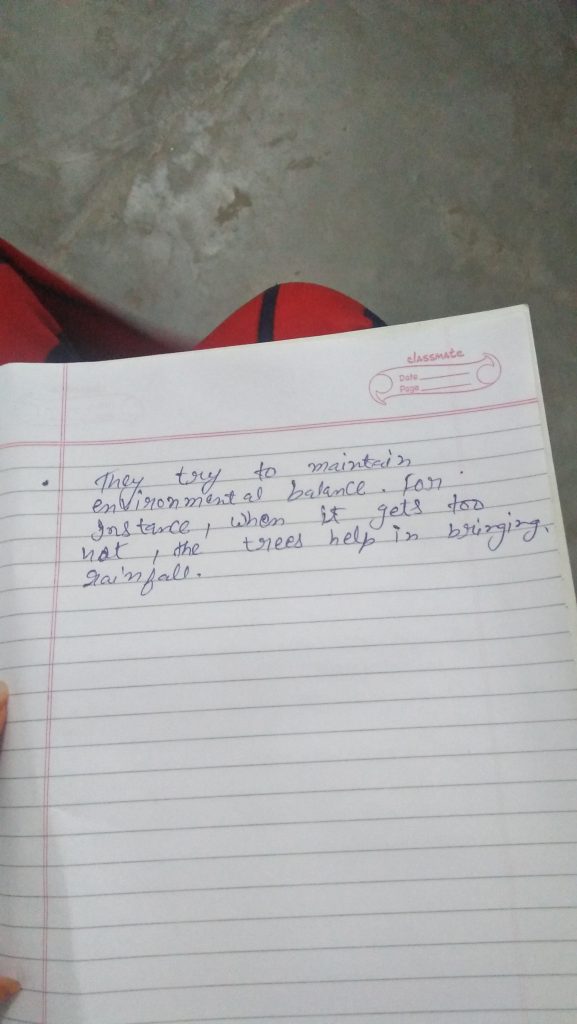 classmate
Date
Page
• They try to maintain
environmental balance. For
Instance, when it gets too
hot, the trees help in bringing
rainfall.